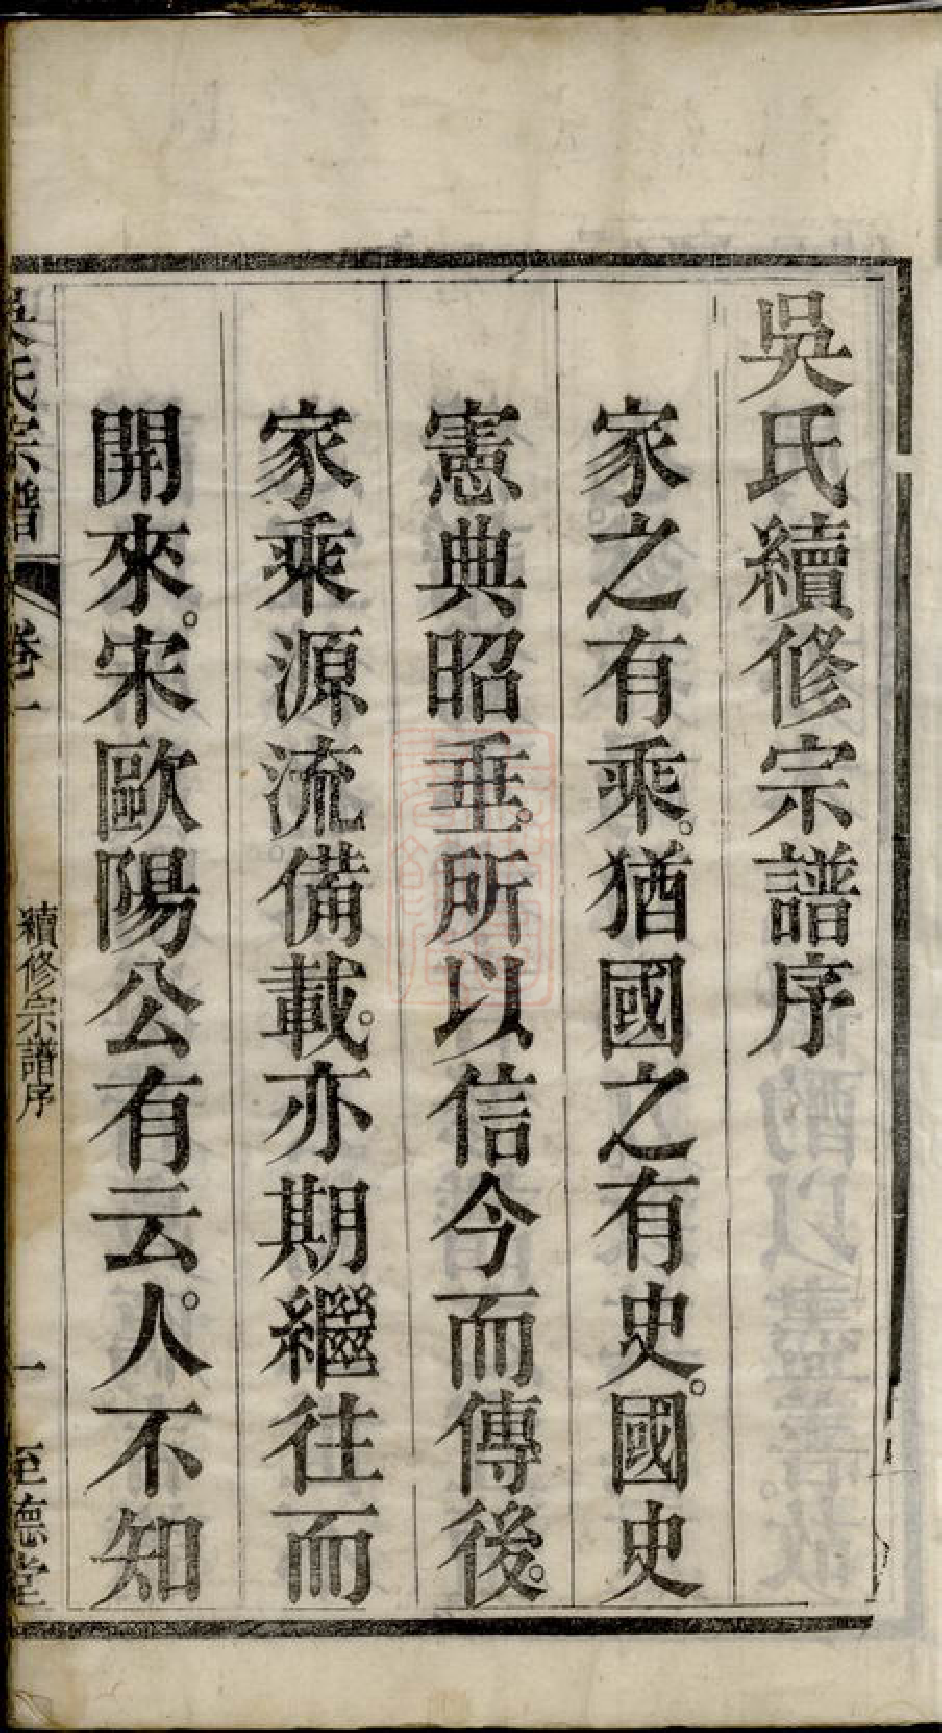 吳氏續修宗譜序
家之有乘。猶國之有史。國史
憲典昭垂。所以信今而傳後。
家乘源流備載。亦期繼往而
開來。宋歐陽公有云。人不知
吳氏宗譜 卷一 續修宗譜序 一 至德堂